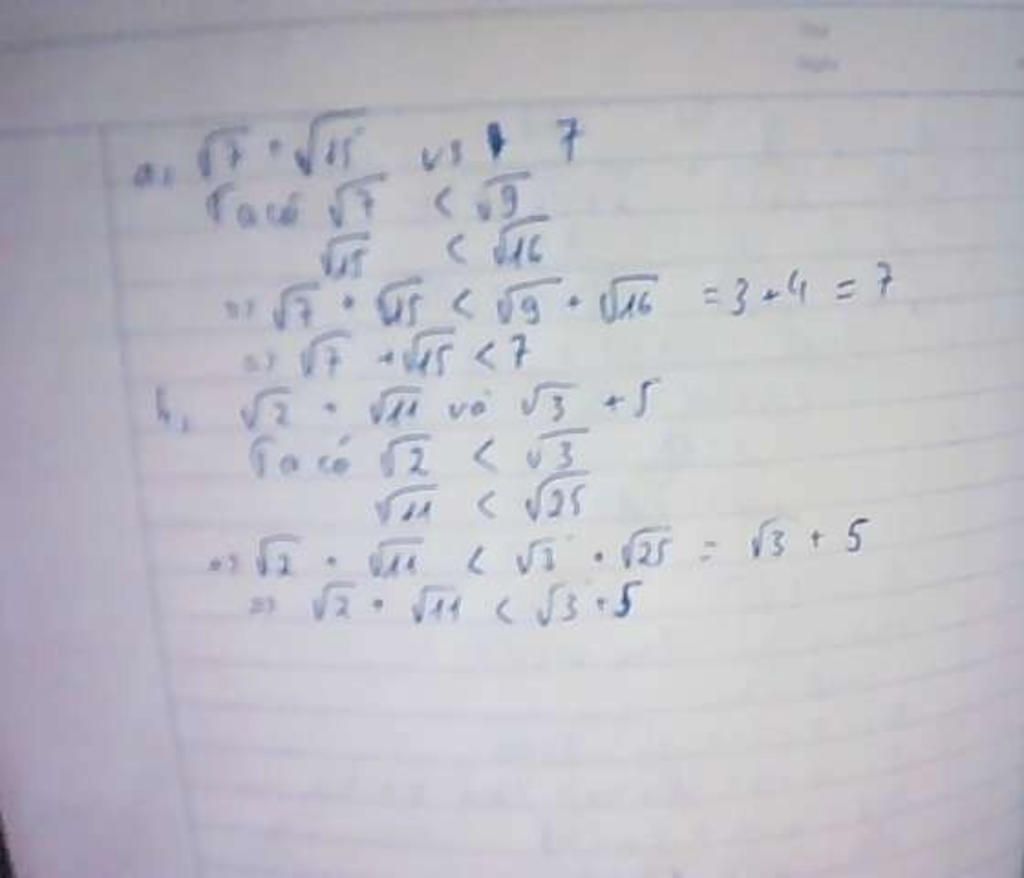 a, √7 + √15 vs 7
Ta có √7 < √9
√15 < √16
=> √7 + √15 < √9 + √16 = 3 + 4 = 7
=> √7 + √15 < 7
b, √2 + √11 và √3 + 5
Ta có √2 < √3
√11 < √25
=> √2 + √11 < √3 + √25 = √3 + 5
=> √2 + √11 < √3 + 5